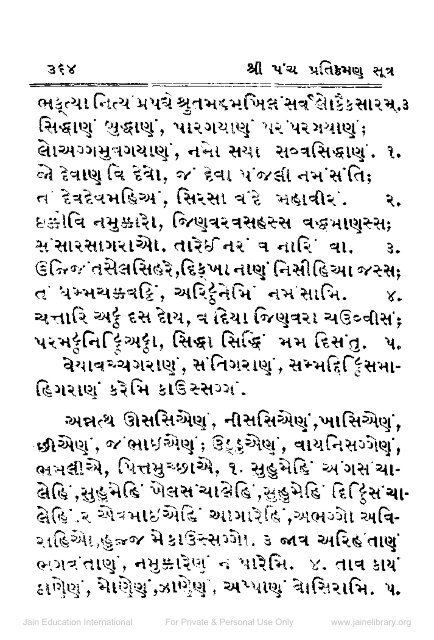 ૩૬૪ શ્રી પંચ પ્રતિક્રમણ સૂત્ર
ભક્ત્યા નિત્યં પ્રપદ્યે શ્રુતમહમખિલં સર્વલોકૈકસારમ્.૩
સિદ્ધાણં બુદ્ધાણં, પારગયાણં પરંપરગયાણં;
લોઅગ્ગમુવગયાણં, નમો સયા સવ્વસિદ્ધાણં. ૧.
જો દેવાણ વિ દેવો, જં દેવા પંજલી નમંસંતિ;
તં દેવદેવમહિઅં, સિરસા વંદે મહાવીરં. ૨.
ઇક્કોવિ નમુક્કારો, જિણવરવસહસ્સ વદ્ધમાણસ્સ;
સંસારસાગરાઓ. તારેઈ નરં વ નારિં વા. ૩.
ઉજ્જિંતસેલસિહરે,દિક્ખા નાણં નિસીહિઆ જસ્સ;
તં ધમ્મચક્કવટ્ટિં, અરિટ્ઠનેમિં નમંસામિ. ૪.
ચત્તારિ અટ્ઠ દસ દોય, વંદિયા જિણવરા ચઉવ્વીસં;
પરમટ્ઠનિટ્ઠિઅટ્ઠા, સિદ્ધા સિદ્ધિં મમ દિસંતુ. ૫.
વેયાવચ્ચગરાણં, સંતિગરાણં, સમ્મદ્દિટ્ઠિસમા-
હિગરાણં કરેમિ કાઉસ્સગ્ગં.
અન્નત્થ ઊસસિએણં, નીસસિએણં,ખાસિએણં,
છીએણં, જંભાઇએણં; ઉડ્ડુએણં, વાયનિસગ્ગેણં,
ભમલીએ, પિત્તમુચ્છાએ, ૧. સુહુમેહિં અંગસંચા-
લેહિં,સુહુમેહિં ખેલસંચાલેહિં,સુહુમેહિં દિટ્ઠિસંચા-
લેહિં.૨ એવમાઇએહિં આગારેહિં,અભગ્ગો અવિ-
રાહિઓ,હુજ્જ મે કાઉસ્સગ્ગો. ૩ જાવ અરિહંતાણં
ભગવંતાણં, નમુક્કારેણં ન પારેમિ. ૪. તાવ કાયં
ઠાણેણં, મોણેણં,ઝાણેણં, અપ્પાણં વોસિરામિ. ૫.
Jain Education International For Private & Personal Use Only www.jainelibrary.org